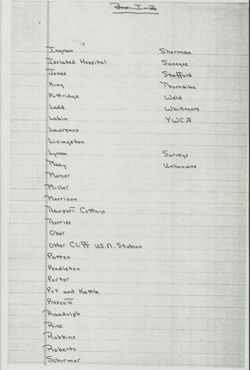 Box I-Z
Ingram
Isolated Hospital
Jones
King
Kittridge
Ladd
Lawrence
Livingston
Lynam
Macy
Mercer
Miller
Morrison
Newport Cottage
Norriss
Ober
Otter Cliff U.S.N. Station
Patten
Pendleton
Porter
Pot and Kettle
Prescott
Randolph
Rice
Robbins
Roberts
Schirmer
Sherman
Sonogee
Stafford
Thorndike
Weld
Whitmore
YWCA
Surveys
Unknowns